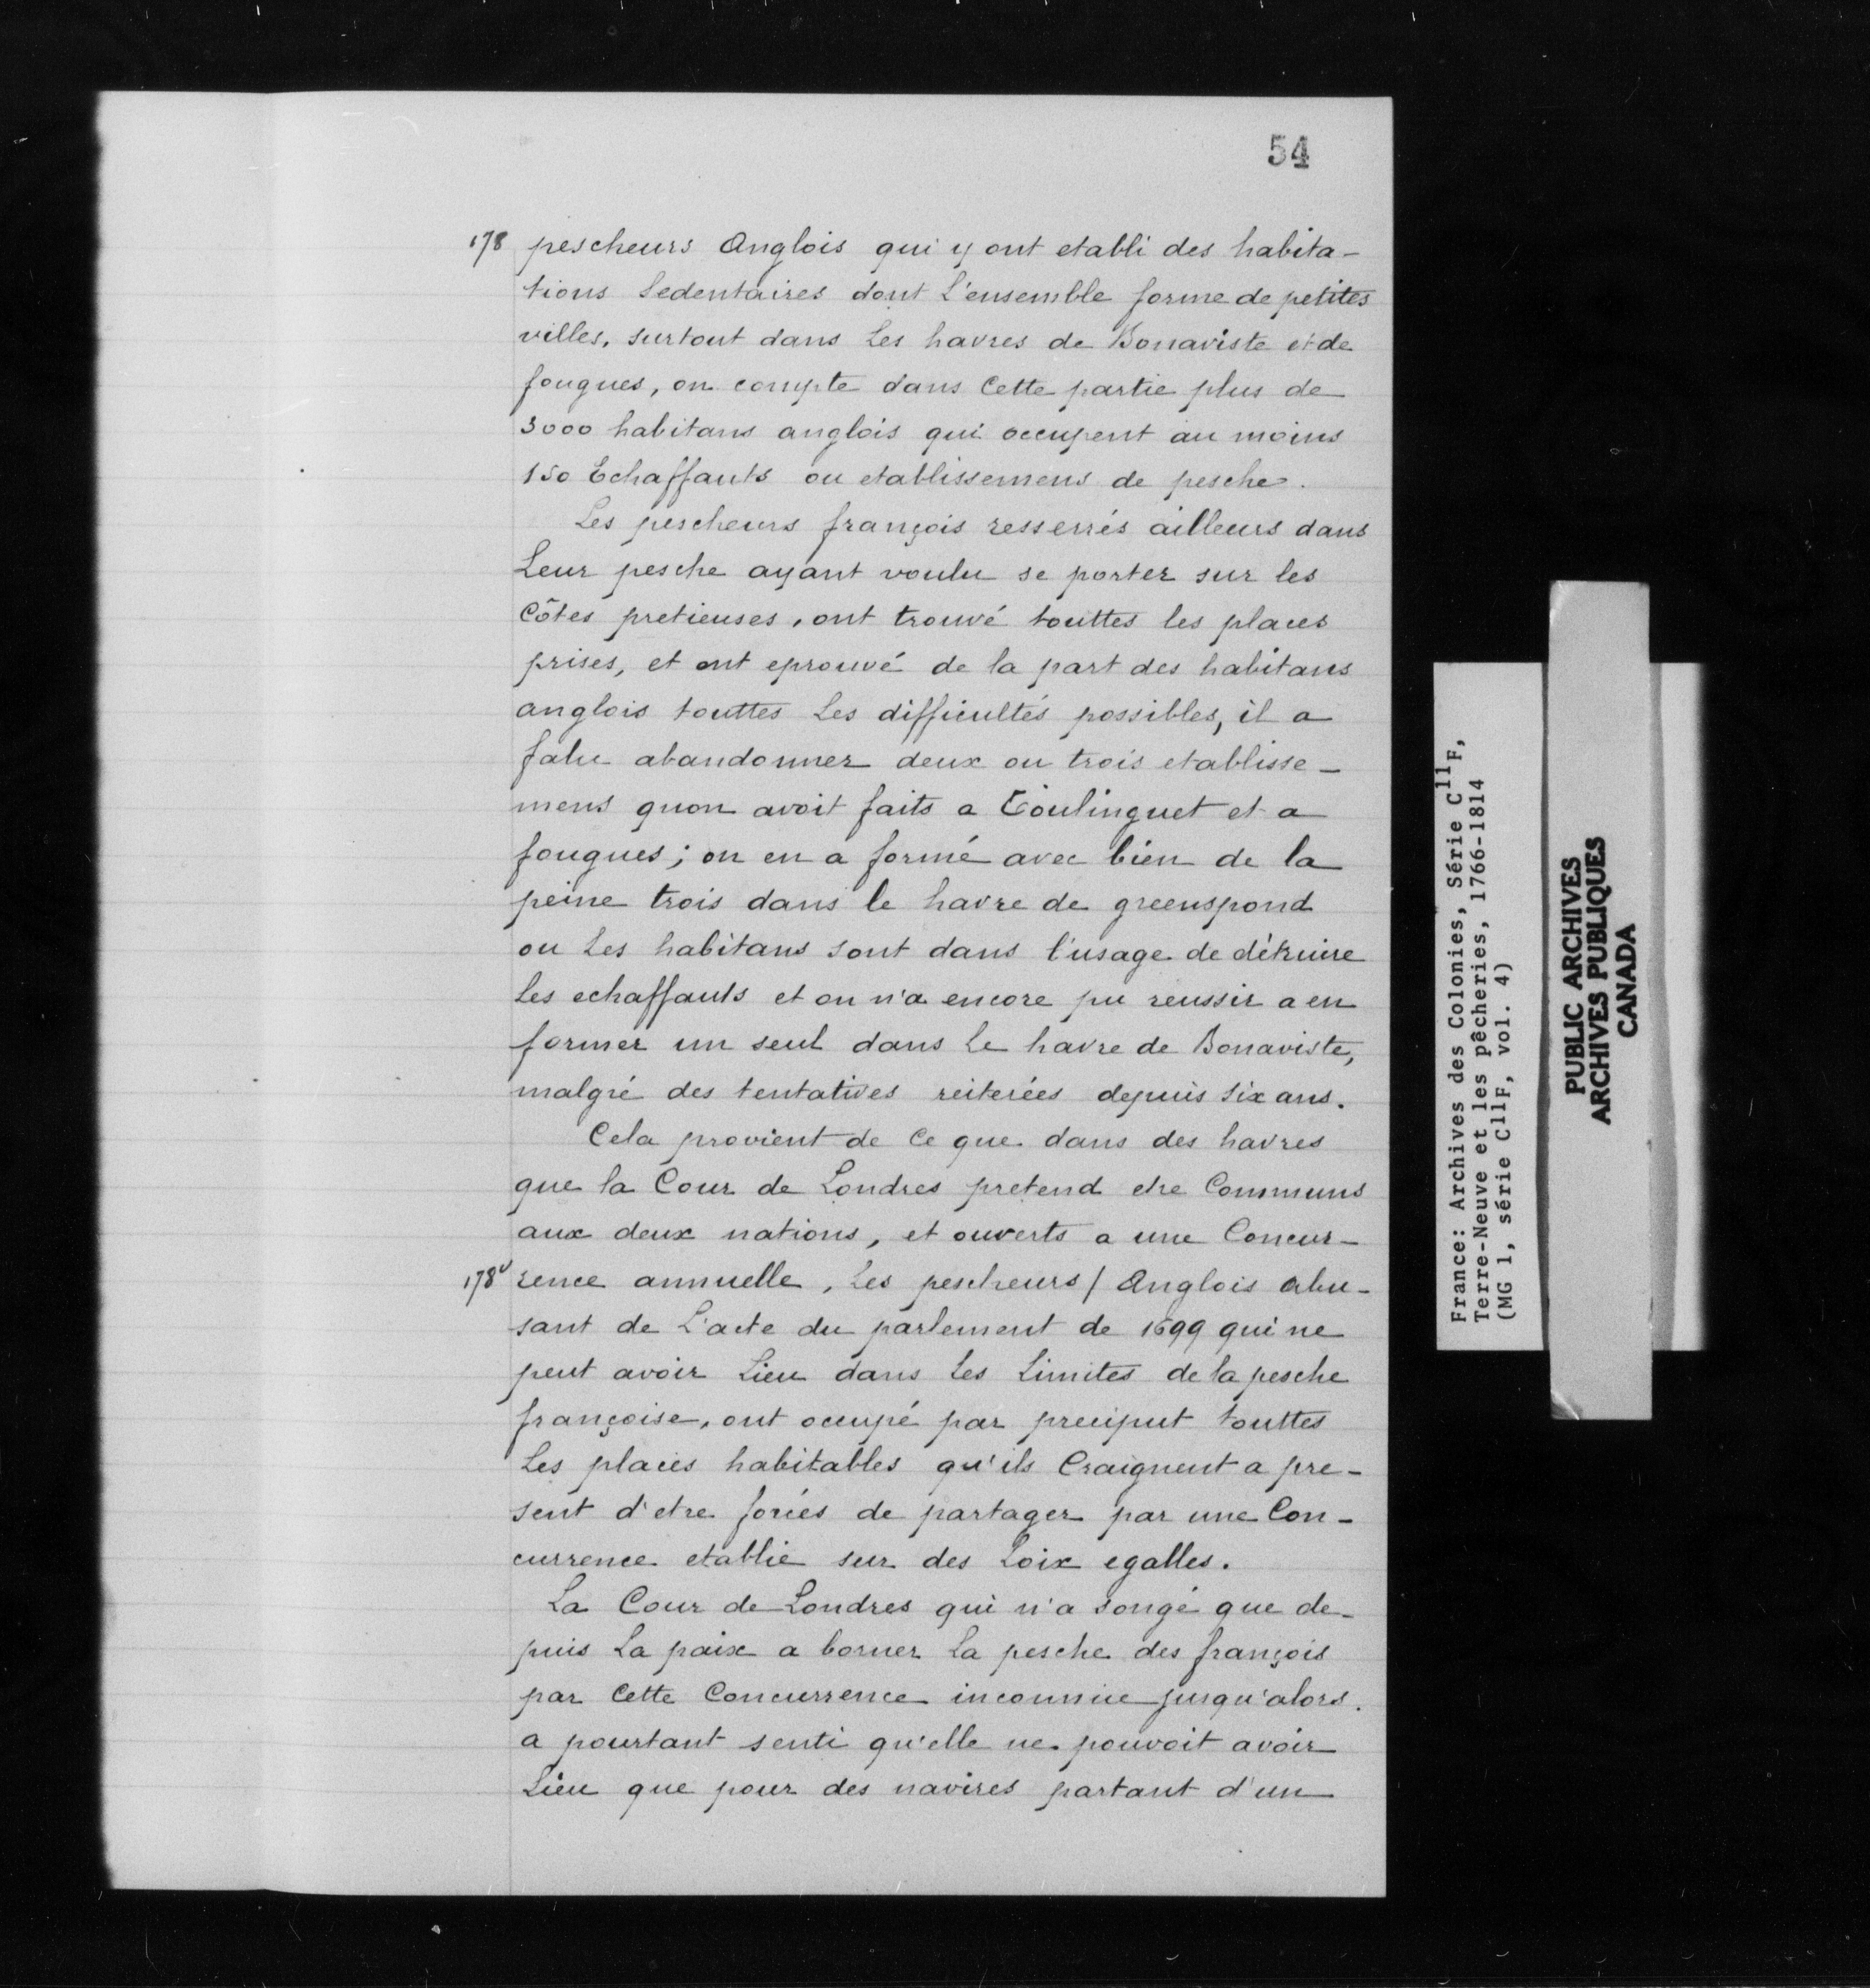 54
178 pescheurs Anglois qui y ont etabli des habita-
tions Sedentaires dont L'ensemble forme de petites
villes, surtout dans Les havres de Bonaviste et de
fougues, on compte dans Cette partie plus de
3000 habitans anglois qui occupent au moins
150 Echaffauts ou etablissemens de pesche.
Les pescheurs françois resserrés ailleurs dans
Leur pesche ayant voulu se porter sur les
Côtes pretieuses, ont trouvé touttes les places
prises, et ont eprouvé de la part des habitans
anglois touttes Les difficultés possibles, il a
falu abandonner deux ou trois etablisse-
mens quon avoit faits a Toulinguet et a
fougues; on en a formé avec bien de la
peine trois dans le havre de greenspond
ou Les habitans sont dans l'usage de détruire
Les echaffauts et on n'a encore pu reussir a en
former un seul dans Le havre de Bonaviste,
malgré des tentatives reiterées depuis Six ans.
Cela provient de Ce que dans des havres
que la Cour de Londres pretend etre Communs
aux deux nations, et ouverts a une Concur-
178v rence annuelle, Les pescheurs / Anglois abu-
sant de L'acte du parlement de 1699 qui ne
peut avoir Lieu dans Les Limites de la pesche
françoise, ont occupé par preciput touttes
Les places habitables qu'ils Craignent a pre-
sent d'etre forcés de partager par une Con-
currence etablie sur des Loix egalles.
La Cour de Londres qui n'a songé que de-
puis La paix a borner La pesche des françois
par Cette Concurrence inconnue jusqu'alors.
a pourtant senti qu'elle ne pouvoit avoir
Lieu que pour des navires partant d'un
France: Archives des Colonies, Série C11F,
Terre-Neuve et les pêcheries, 1766-1814
(MG 1, série C11F, vol. 4)
PUBLIC ARCHIVES
ARCHIVES PUBLIQUES
CANADA